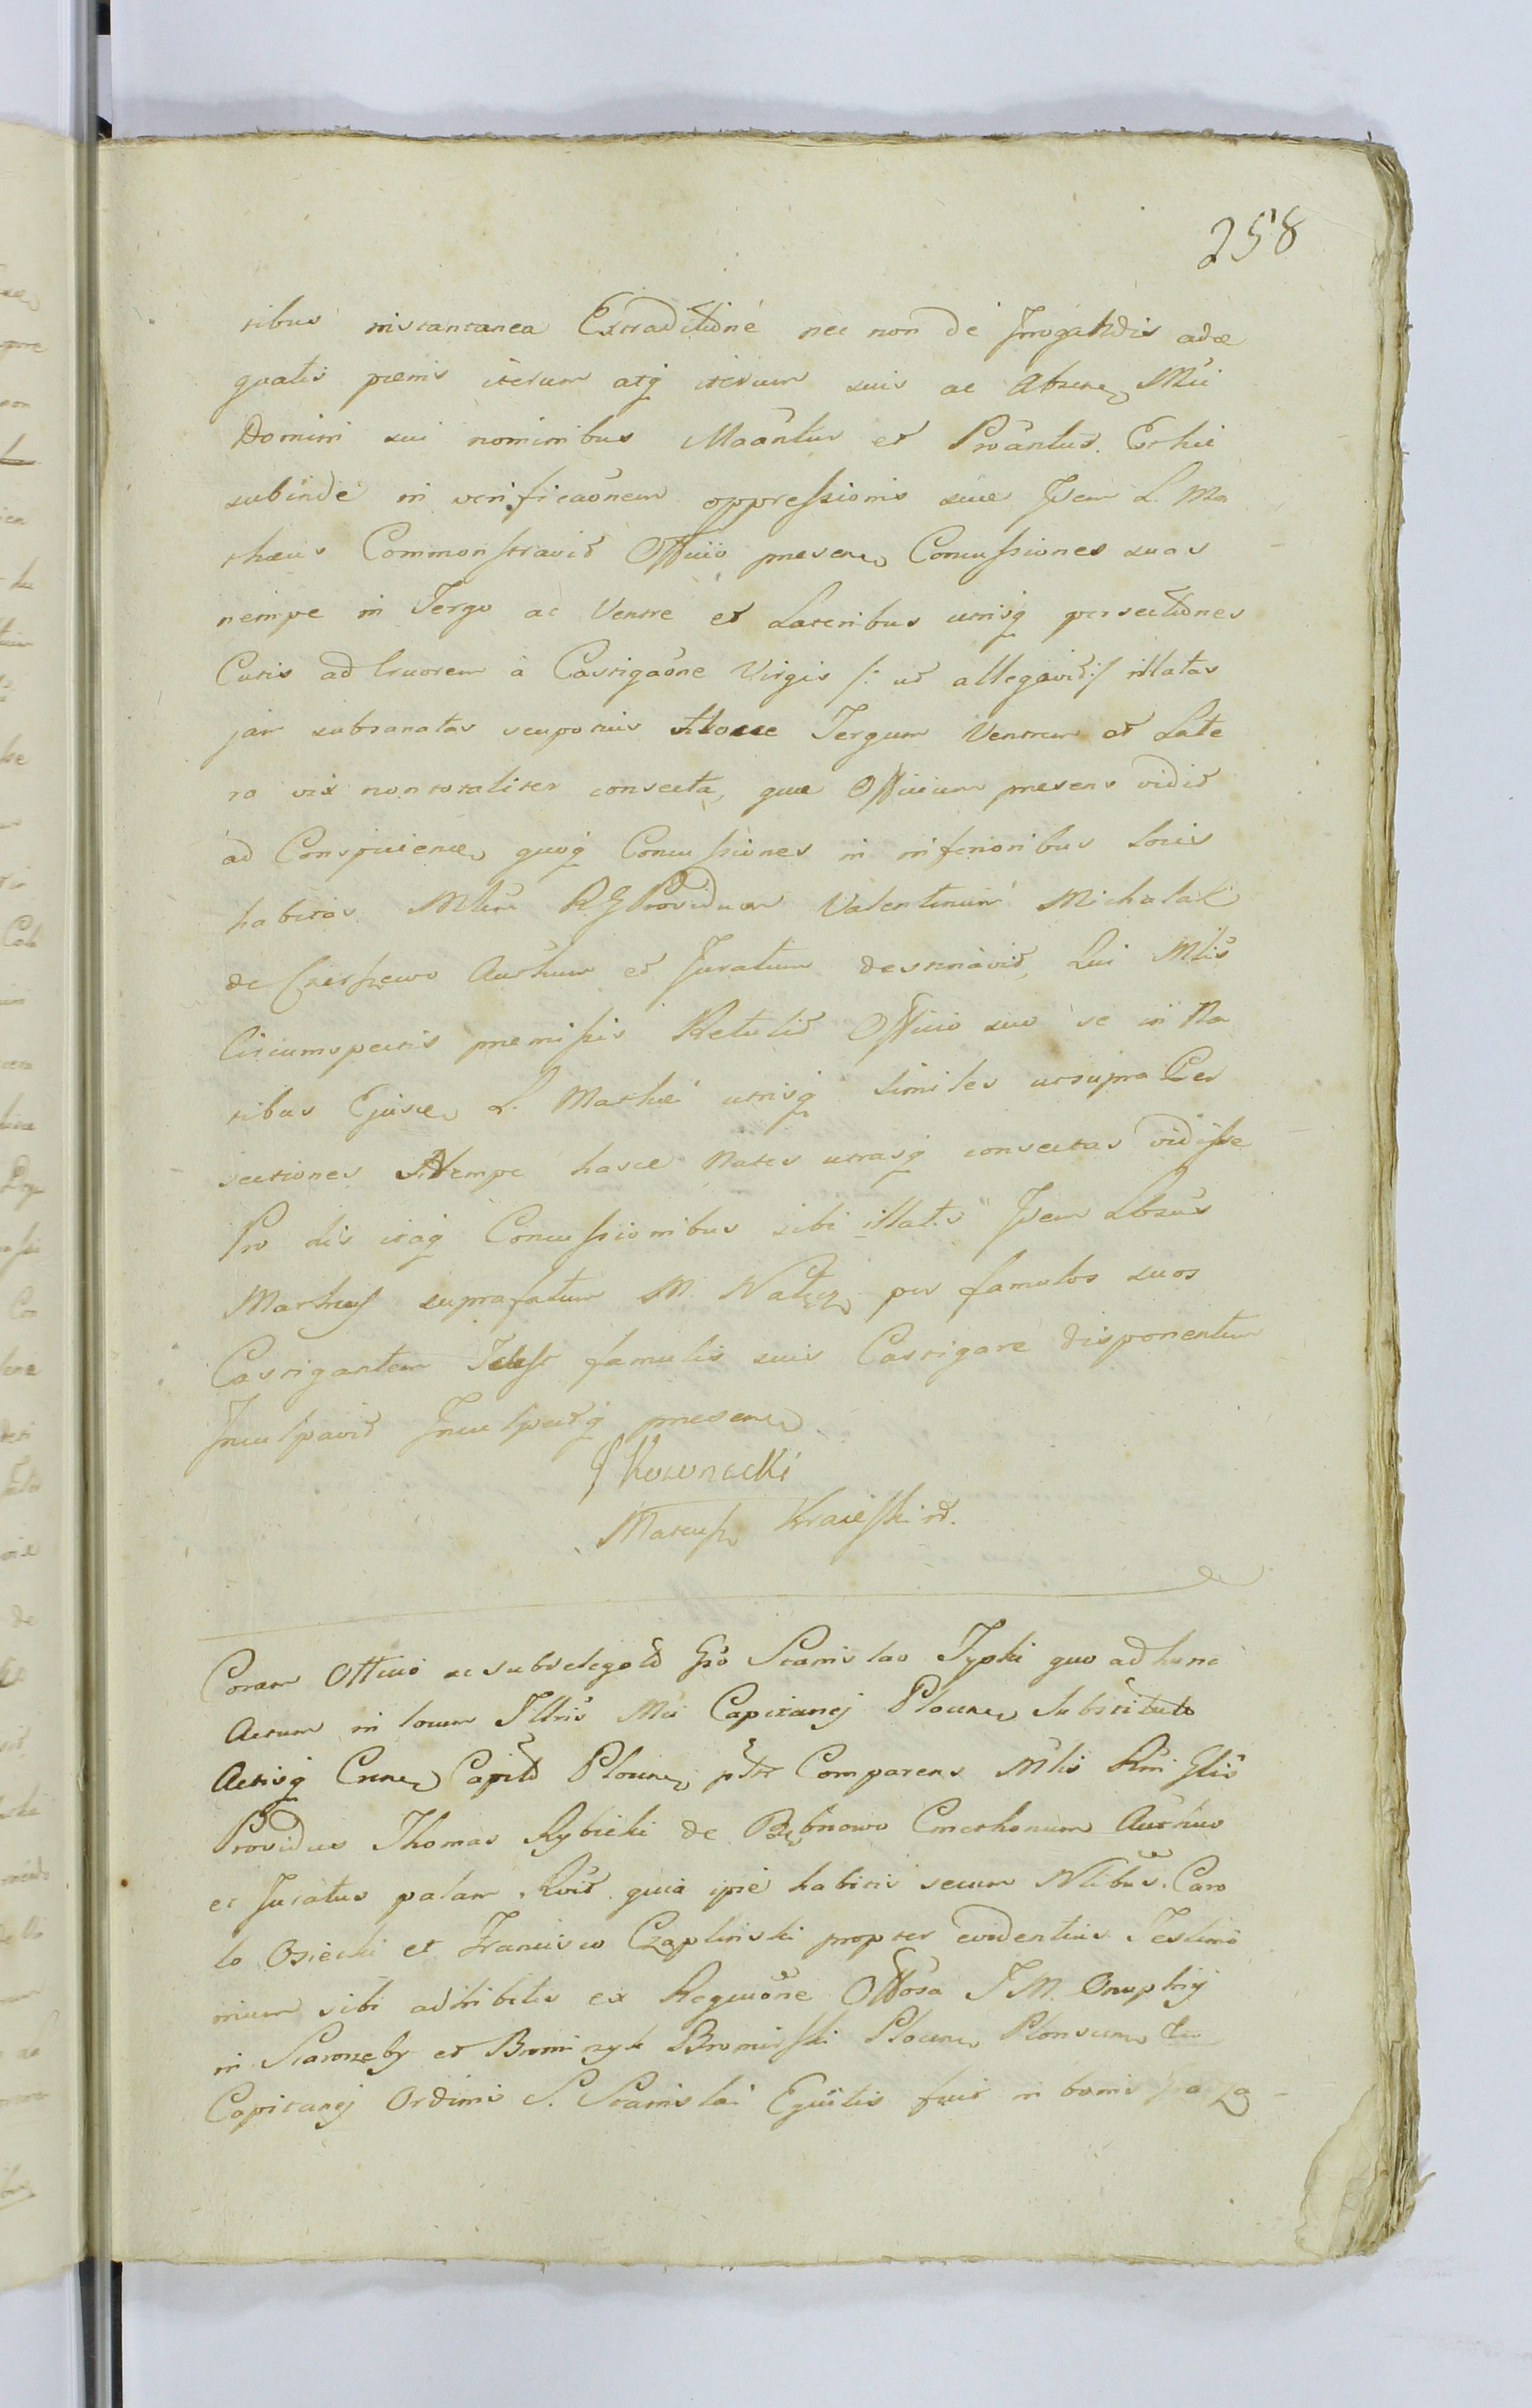 258
ribus instantanea Extraditione nec non de Irrogandis adæ
quatis pænis iterum atq iterum suis ac Absen Mci
Domini sui nominibus Maântur et Proântur. Et hic
subinde in verificaônem oppressionis suæ Idem L. Ma
thæus Commonstravit Officio presen Concussiones suas
nempe in Tergo ac Ventre et Lateribus utrisq persectiones
Cutis ad Cruorem à Castigaône Virgis /: ut allegavit :/ illatas
jam subsanatas Tergum Ventrem et Late
ra vix non totaliter consecta, quæ Officium presens vidit
ad Conspicien quoq Concussiones in inferioribus locis
habitas Mlem R. G. Providum Valentinum Michalak
de Authum et Juratum destinavit, Qui Mlis
Circumspectis premissis Retulit Officio suo se in Na
tibus Ejusd L. Mathei utrisq similes utsupra Per
sectiones Nempe hasce Nates utrasq consectas vidisse
Pro his itaq Concussionibus sibi illatis Idem Lbsus
Matheus suprafatum M. per famulos suos
Castigantem Id est famulis suis Castigare disponentem
Inculpavit Inculpatq presen
Kraieski
Coram Officio ac subdelegato Gso Stanislao Typski quo ad hunc
Actum in locum Illris Mci Capitanej Plocen Substituto
Actisq Capit Plocen Comparens Mlis Rni Glis
Providus Thomas Rybicki de Bębnowo Cmethonum Authus
et Juratus palam Rvit quia ipse habitis secum Nlibus Caro
lo Osiecki et Francisco Czaplinski propter evidentius Testimo
nium sibi adhibitis ex Requône Offiosa I M. Onuphrij
in Starozreby et Bromirzyk Bromirski Plocen Plonscen
Capitanej Ordinis S. Stanislai Equitis fuit in bonis